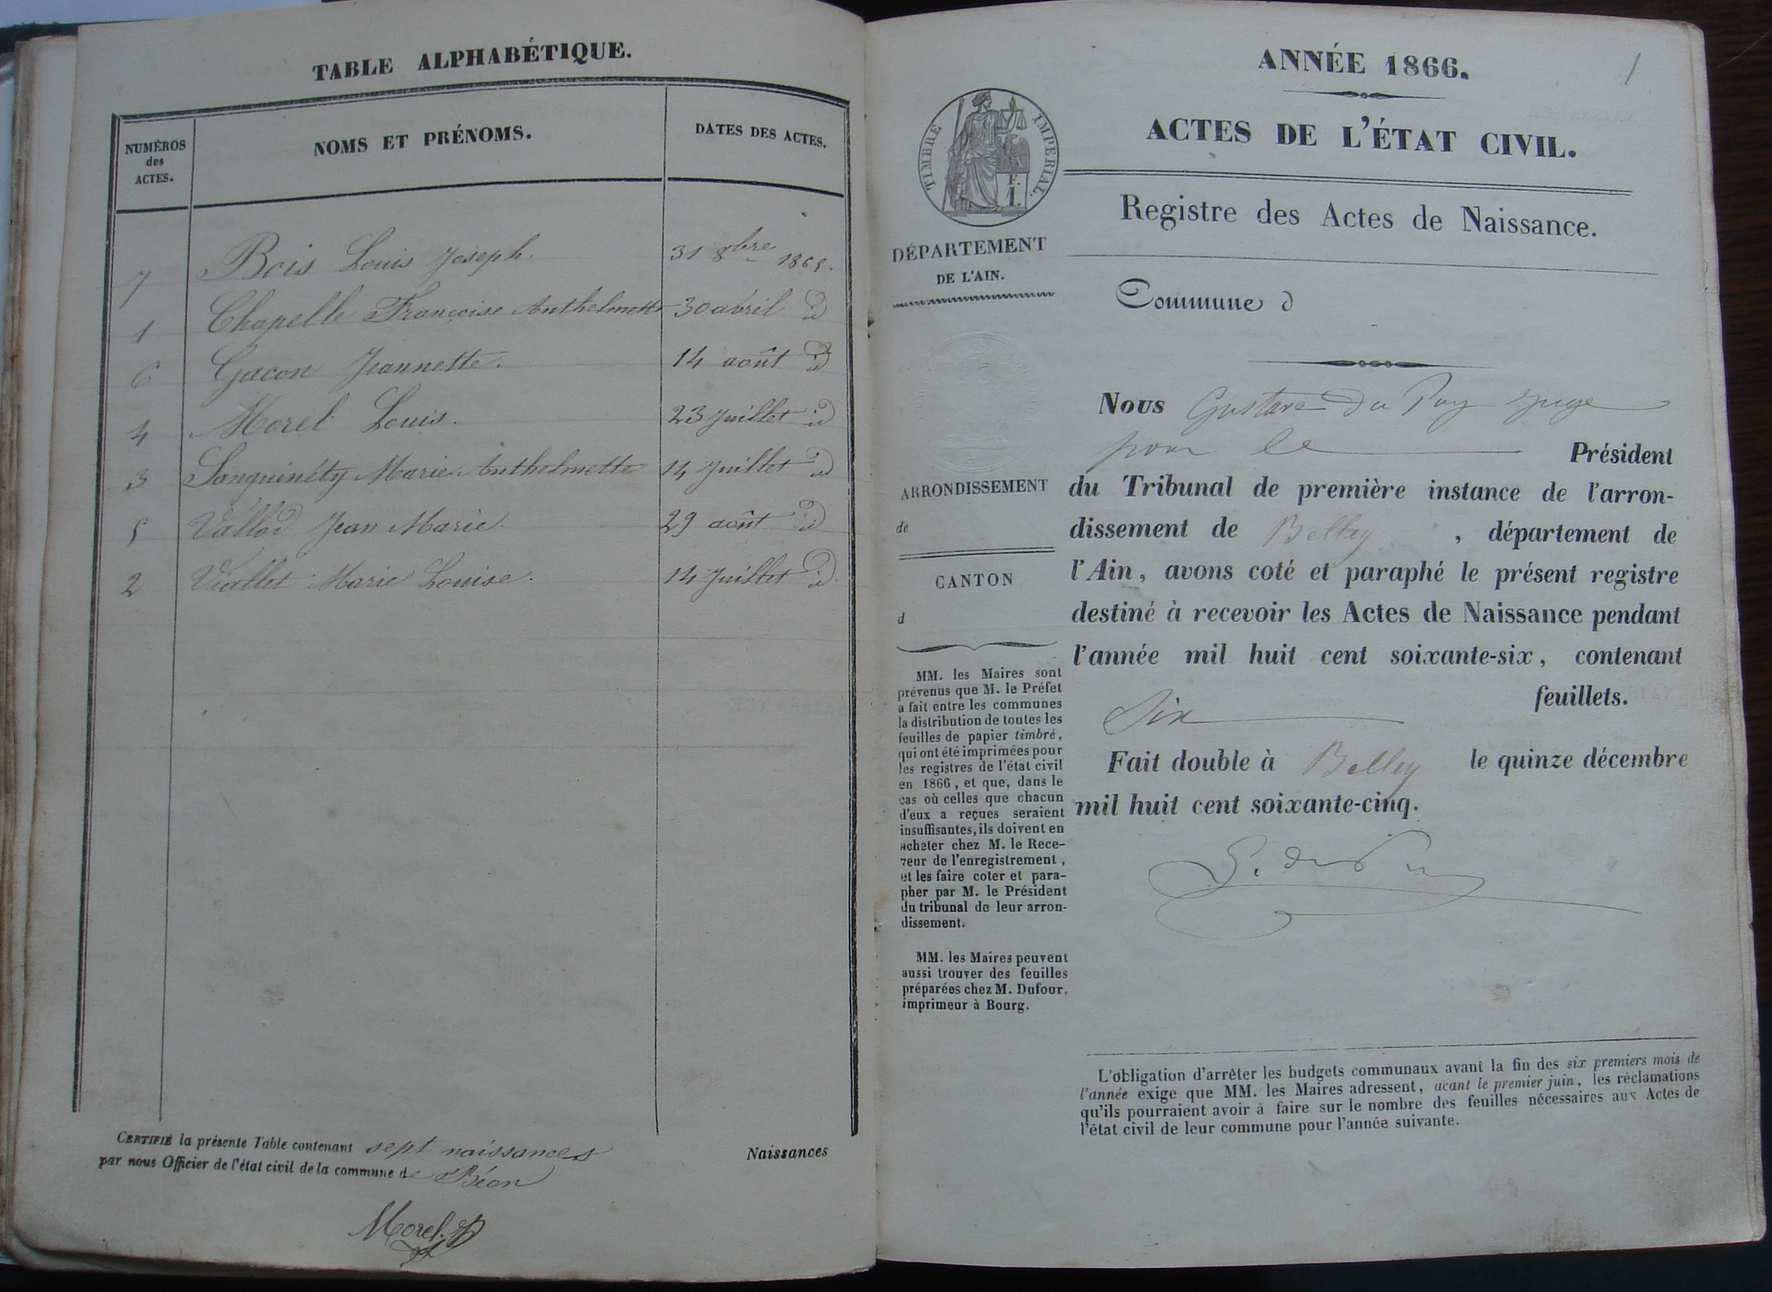 TABLE ALPHABÉTIQUE.
NUMÉROS
des
ACTES.
NOMS ET PRÉNOMS.
DATES DES ACTES.
7 Bois Louis Joseph. 31 8bre 1865.
1 Chapelle Françoise Anthelmette 30 avril d
6 Gacon Jeannette. 14 août d
4 Morel Louis. 23 Juillet d
3 Sanguinéty Marie Anthelmette 14 Juillet d
5 Vallod Jean Marie. 29 août d
2 Viallet Marie Louise. 14 Juillet d
CERTIFIÉ la présente Table contenant sept naissances Naissances
par nous Officier de l'état civil de la commune de Béon
Morel
1
ANNÉE 1866.
ACTES DE L'ÉTAT CIVIL.
TIMBRE IMPERIAL.
Registre des Actes de Naissance.
DÉPARTEMENT
DE L'AIN.
Commune d
ARRONDISSEMENT
de
CANTON
d
MM. les Maires sont
prévenus que M. le Préfet
a fait entre les communes
la distribution de toutes les
feuilles de papier timbré,
qui ont été imprimées pour
les registres de l'état civil
en 1866, et que, dans le
cas où celles que chacun
d'eux a reçues seraient
insuffisantes, ils doivent en
acheter chez M. le Rece-
veur de l'enregistrement,
et les faire coter et para-
pher par M. le Président
du tribunal de leur arron-
dissement.
MM. les Maires peuvent
aussi trouver des feuilles
préparées chez M. Dufour,
imprimeur à Bourg.
Nous Gustave du Puy Juge
pour le Président
du Tribunal de première instance de l'arron-
dissement de Belley, département de
l'Ain, avons coté et paraphé le présent registre
destiné à recevoir les Actes de Naissance pendant
l'année mil huit cent soixante-six, contenant
Six feuillets.
Fait double à Belley le quinze décembre
mil huit cent soixante-cinq.
G. du Puy
L'obligation d'arrêter les budgets communaux avant la fin des six premiers mois de
l'année exige que MM. les Maires adressent, avant le premier juin, les réclamations
qu'ils pourraient avoir à faire sur le nombre des feuilles nécessaires aux Actes de
l'état civil de leur commune pour l'année suivante.